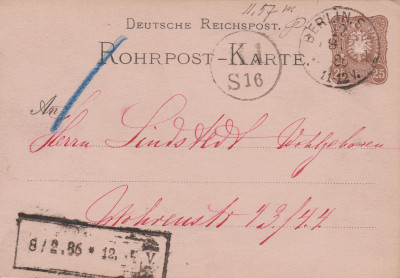 11.57 m
DEUTSCHE REICHSPOST.
ROHRPOST-KARTE.
BERLIN S.W.
11-12 V.
25
S16
An
Herrn Lindstedt Wohlgeboren
Mohrenstr 13/14
8/2.86 * 12. 5 V